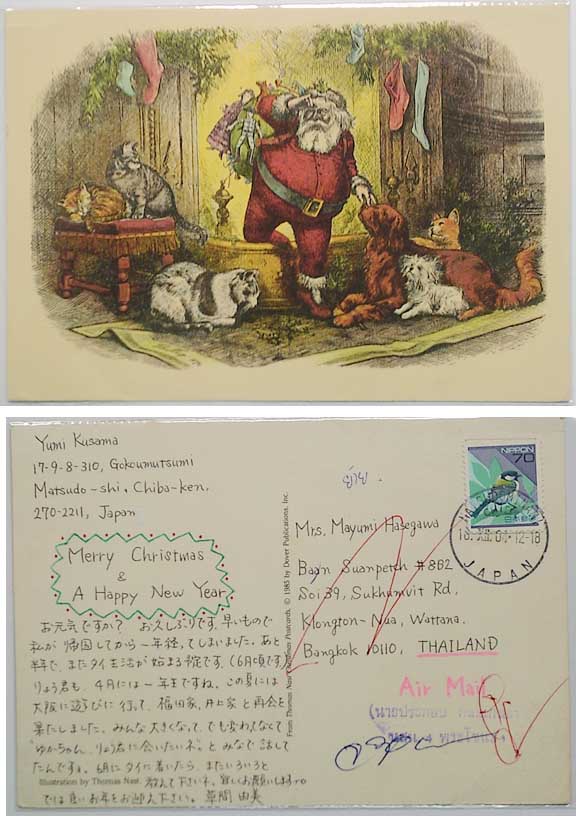 Yumi Kusama
17-9-8-310, Gokoumutsumi
Matsudo-shi, Chiba-ken,
270-2211, Japan
Merry Christmas
&
A Happy New Year
お元気ですか？ お久しぶりです。早いもので
私が帰国してから一年経ってしまいました。あと
半年で、またタイ生活が始まる予定です。(6月頃です)
りょう君も、4月には一年生ですね。この夏には
大阪に遊びに行って、福田家、井上家と再会を
果たしました。みんな大きくなって、でも変わってなくて
"ゆかちゃん、りょう君に会いたいネ"とみんなで話して
たんですョ。6月にタイに着いたら、またいろいろと
Illustration by Thomas Nast 教えて下さいネ。宜しくお願いします。
では良いお年をお迎え下さい。 草間 由美
From Thomas Nast Christmas Postcards, © 1985 by Dover Publications, Inc.
NIPPON
70
日本郵便
12-18
JAPAN
ย้าย.
Mrs. Mayumi Hasegawa
Baan Suanpetch #862
Soi 39, Sukhumvit Rd.
Klongton-Nua, Wattana.
Bangkok 10110, THAILAND
Air Mail
(นายประกอบ